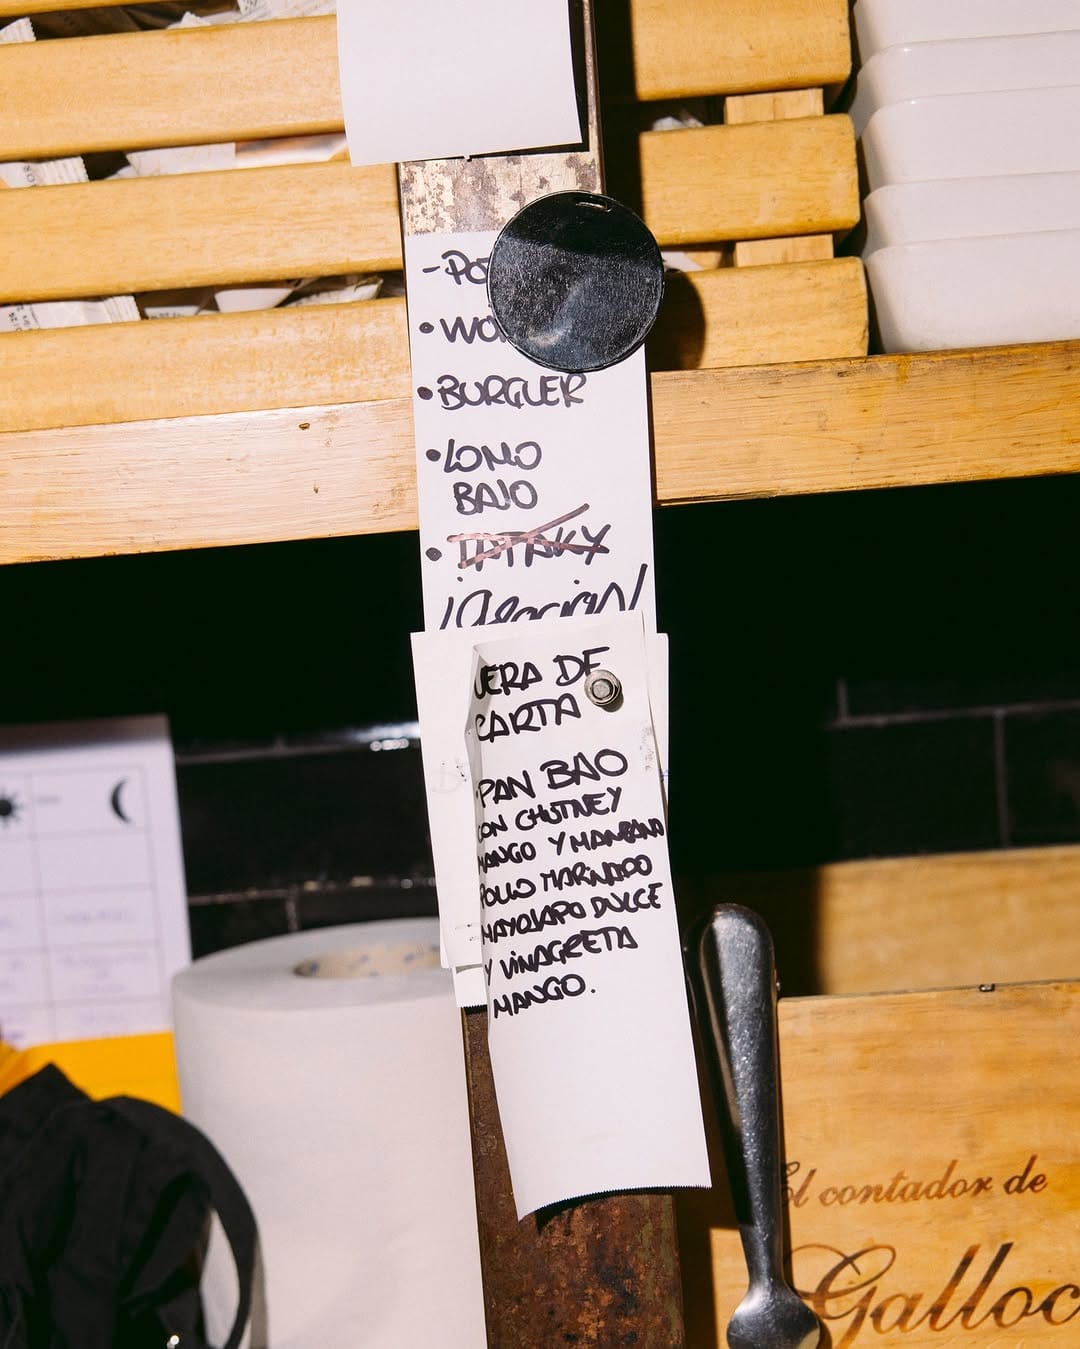 - PO
• WO
• BURGUER
• LOMO
BAJO
• TATAKY
UERA DE
CARTA
PAN BAO
CON CHUTNEY
MANGO Y MANZANA
POLLO MARINADO
MAYOJAPO DULCE
Y VINAGRETA
MANGO.
El contador de
Galloc